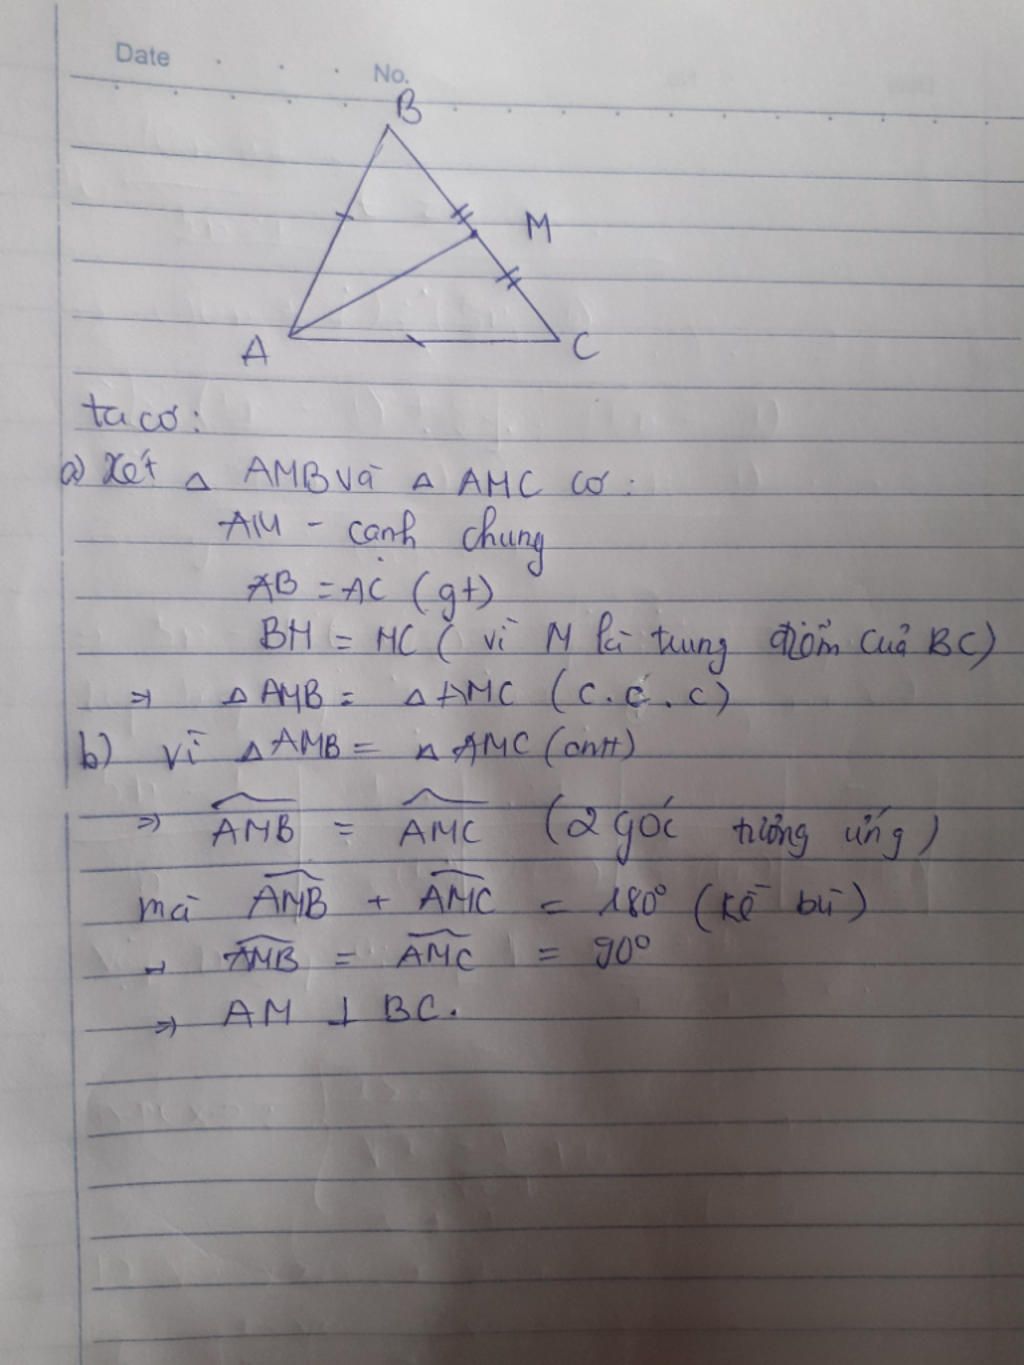 Date
No.
B
M
A
C
ta có:
a) Xét △ AMB và △ AMC có:
AM - cạnh chung
AB = AC (gt)
BM = MC ( vì M là trung điểm của BC)
⇒ △ AMB = △ AMC (c.c.c)
b) Vì △ AMB = △ AMC (cmt)
⇒ \widehat{AMB} = \widehat{AMC} (2 góc tương ứng)
mà \widehat{AMB} + \widehat{AMC} = 180° (kề bù)
⇒ \widehat{AMB} = \widehat{AMC} = 90°
⇒ AM ⊥ BC.